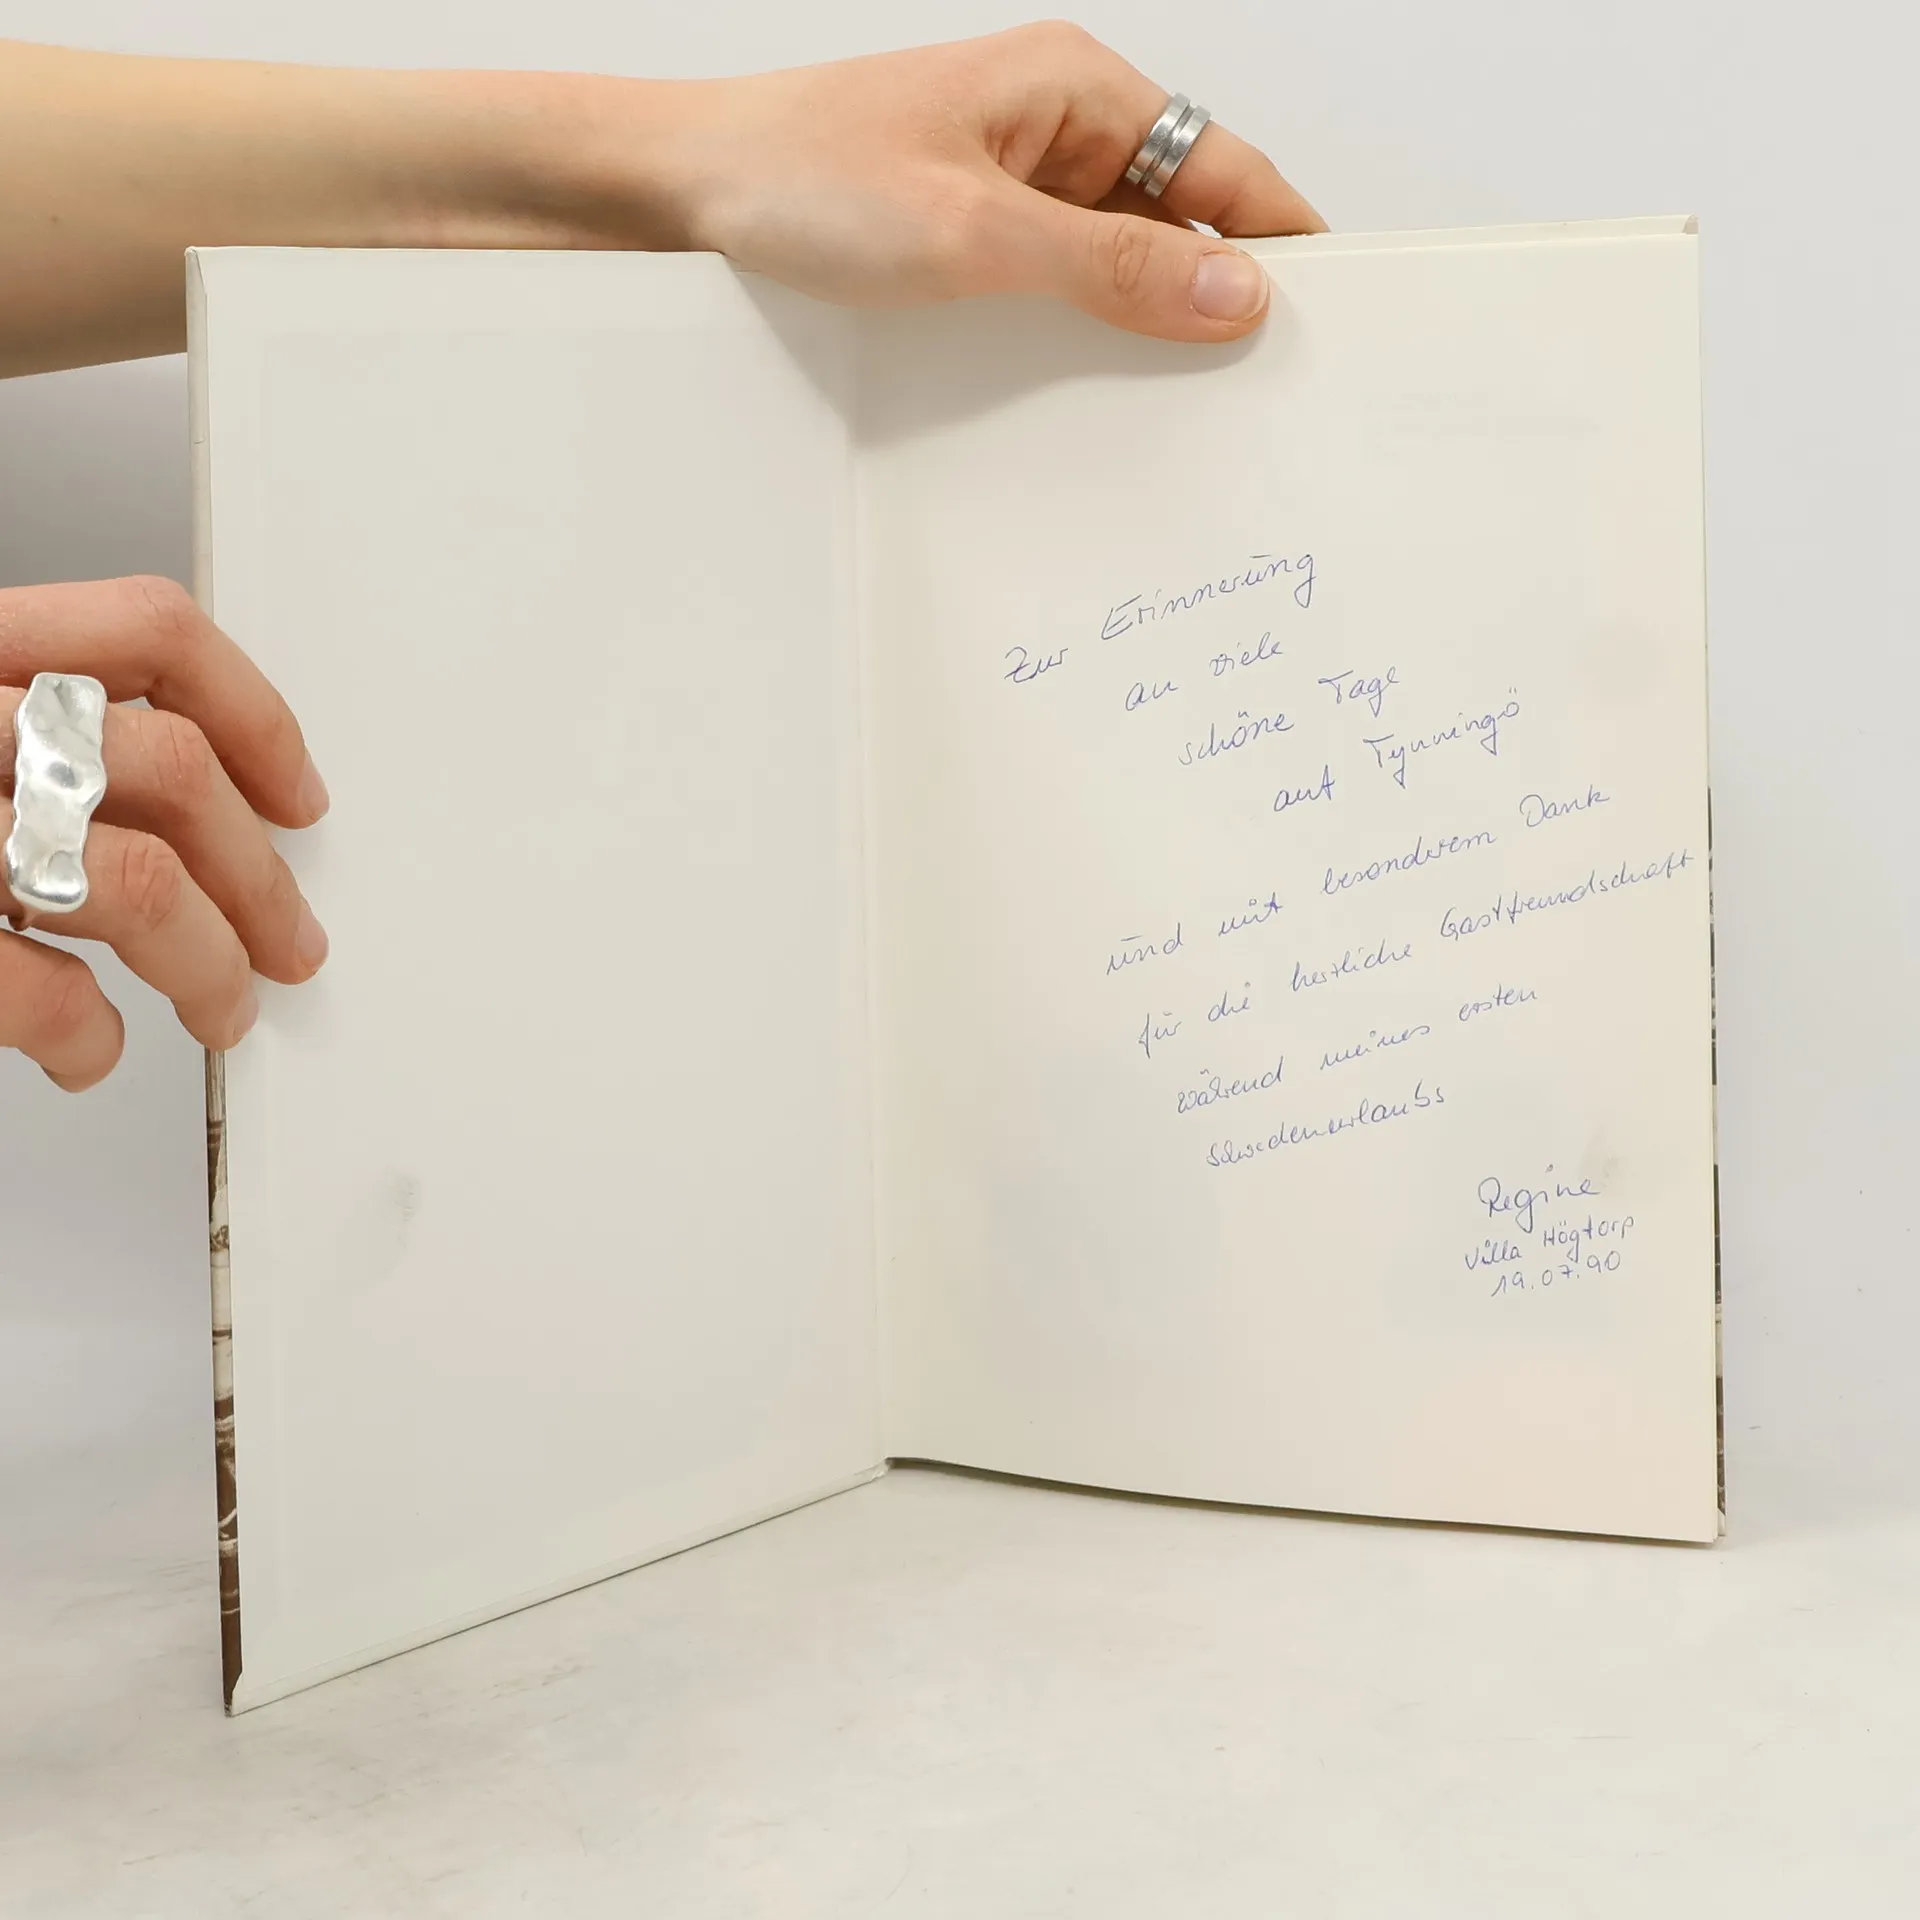 Zur Erinnerung
an viele
schöne Tage
auf Tynningö
und mit besonderem Dank
für die herzliche Gastfreundschaft
während meines ersten
Schwedenurlaubs
Regine
Villa Högtorp
19.07.90